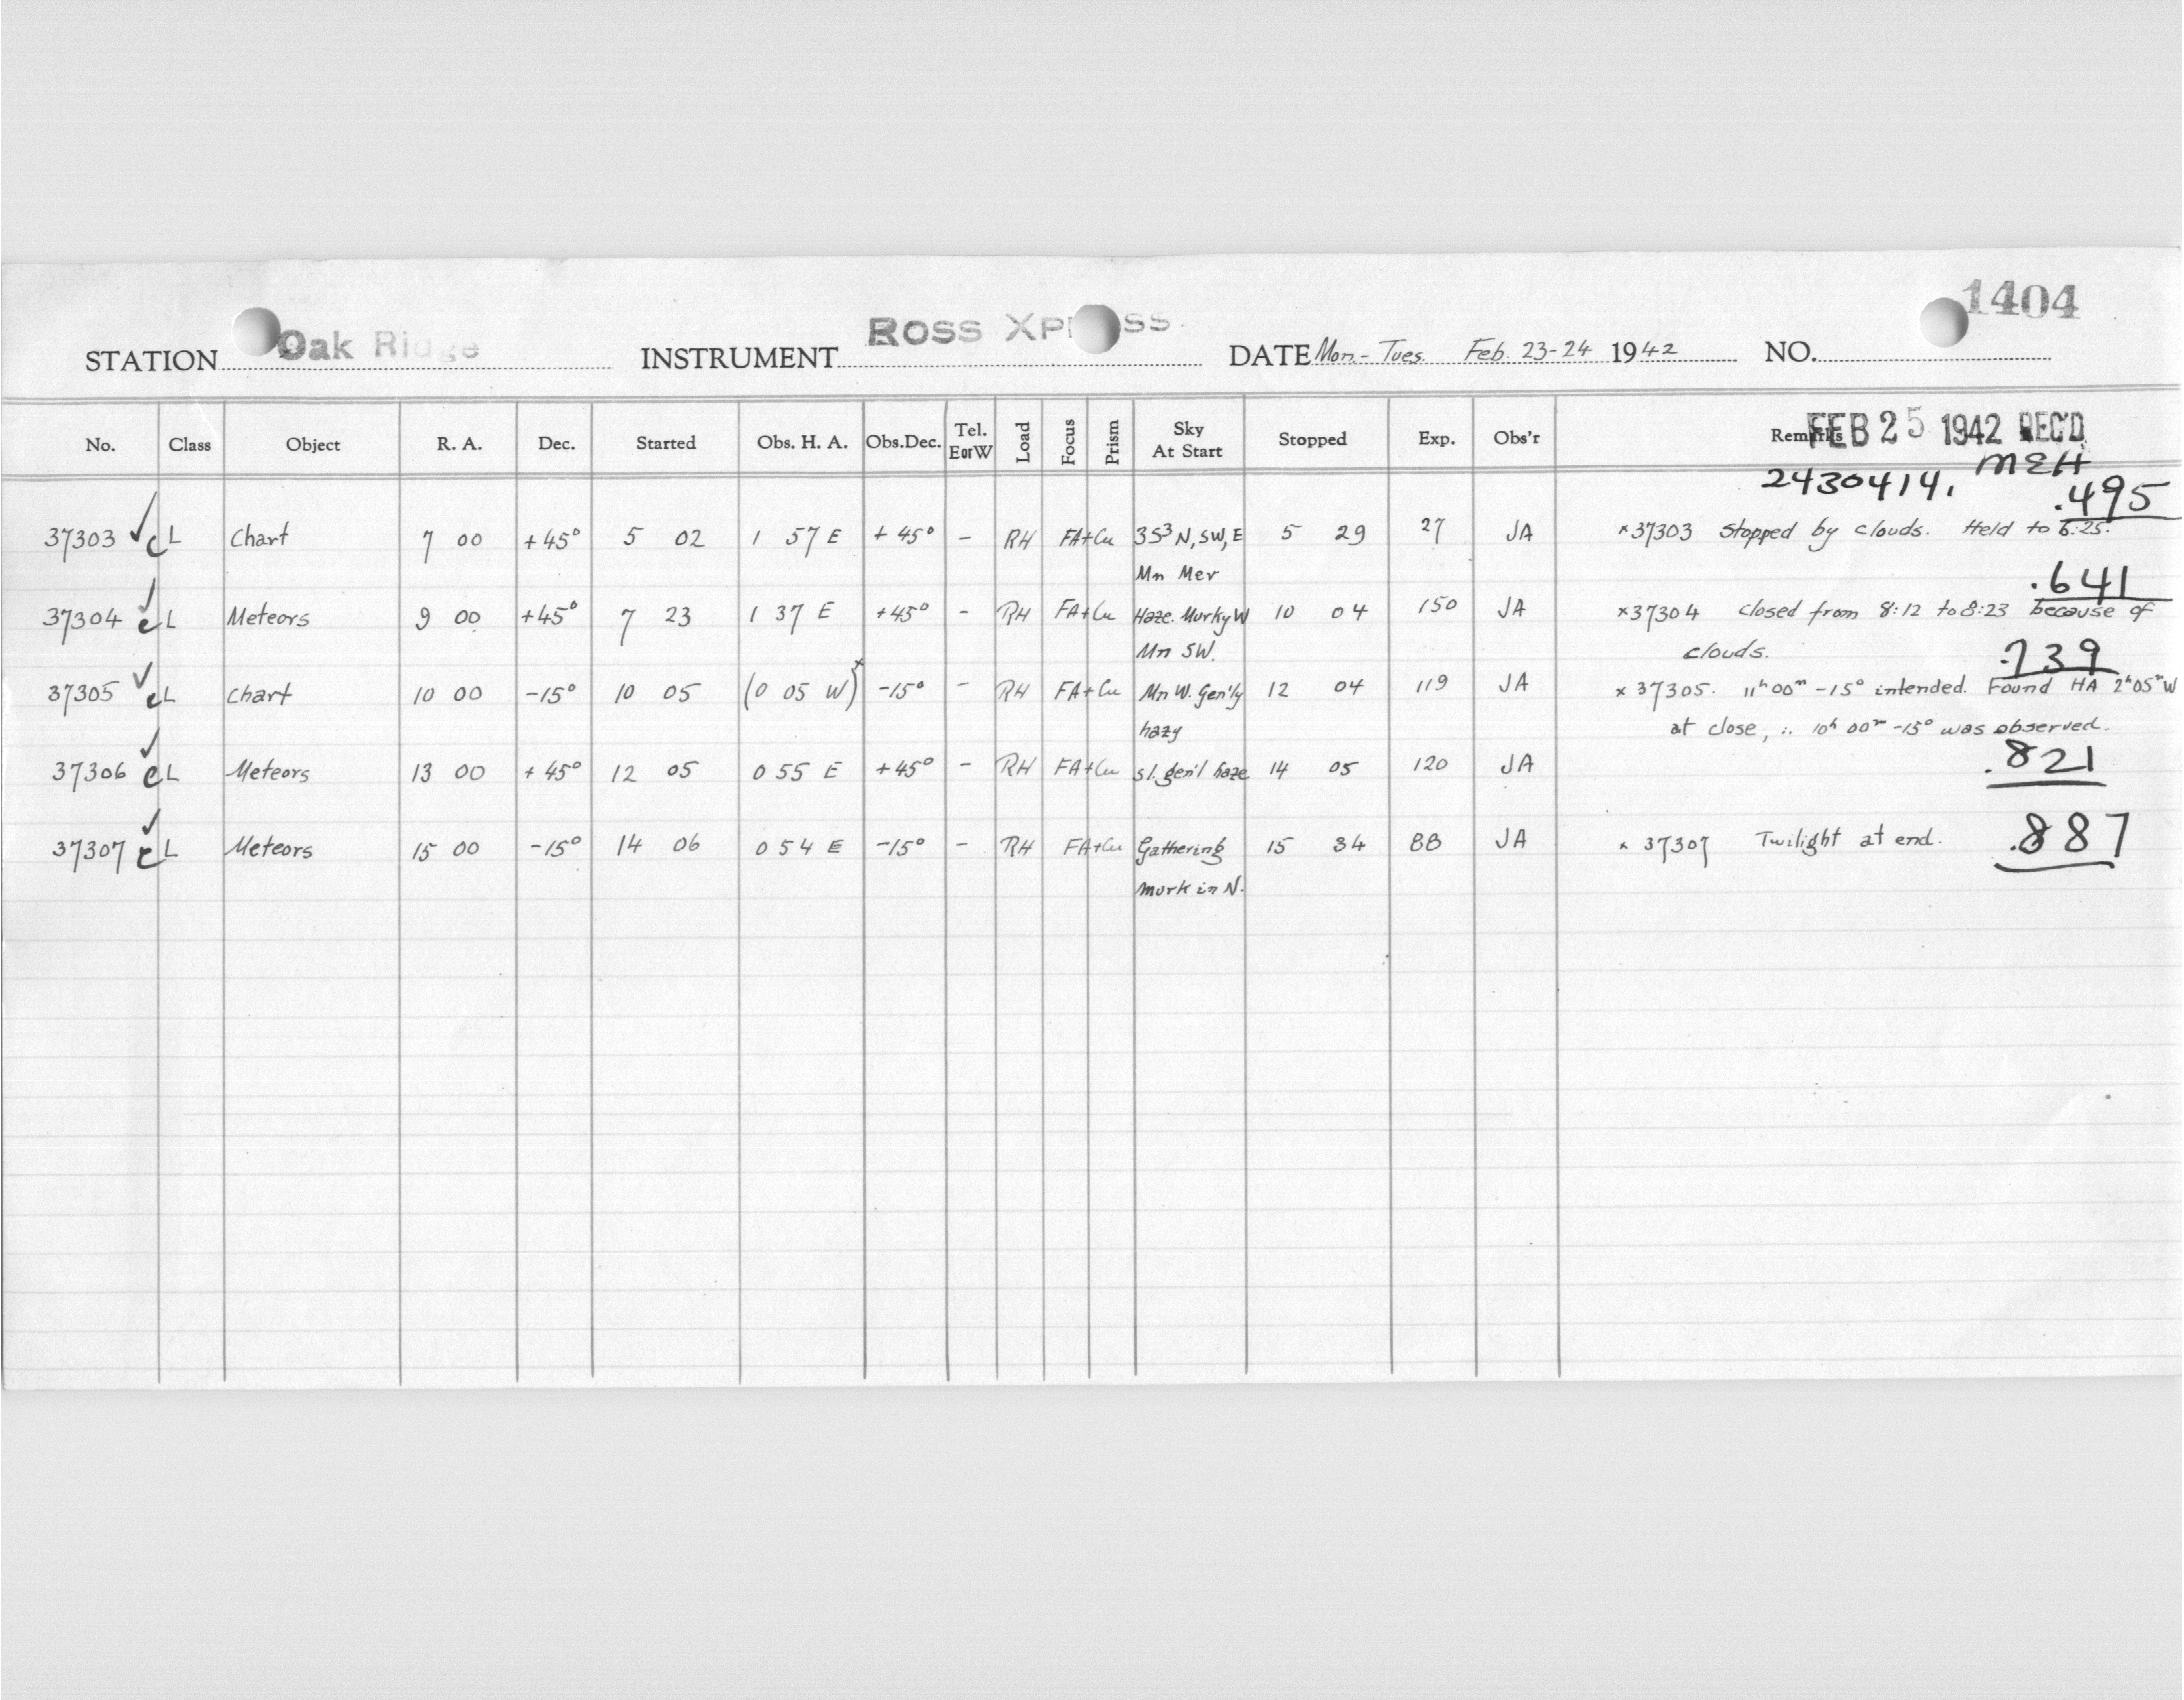 1404
STATION Oak Ridge INSTRUMENT ROSS XP SS. DATE Mon.- Tues. Feb. 23-24 1942 NO.
No. Class Object R. A. Dec. Started Obs. H. A. Obs.Dec. Tel. EorW Load Focus Prism Sky At Start Stopped Exp. Obs'r Remarks
FEB 25 1942 REC'D
MEH
2430414. .495
37303 ✓ cL Chart 7 00 +45° 5 02 1 57 E +45° - RH FA+Cu 3S³ N, SW, E 5 29 27 JA ×37303 Stopped by clouds. Held to 6:25.
Mn Mer
.641
37304 ✓ cL Meteors 9 00 +45° 7 23 1 37 E +45° - RH FA+Cu Haze. Murky W 10 04 150 JA ×37304 closed from 8:12 to 8:23 because of
Mn SW. clouds. .739
37305 ✓ cL Chart 10 00 -15° 10 05 (0 05 W)× -15° - RH FA+Cu Mn W. Gen'ly 12 04 119 JA ×37305. 11ʰ00ᵐ -15° intended. Found HA 2ʰ05ᵐW
hazy at close, ∴ 10ʰ 00ᵐ -15° was observed.
37306 ✓ cL Meteors 13 00 +45° 12 05 0 55 E +45° - RH FA+Cu sl. gen'l haze 14 05 120 JA .821
37307 ✓ cL Meteors 15 00 -15° 14 06 0 54 E -15° - RH FA+Cu Gathering 15 34 88 JA × 37307 Twilight at end. .887
murk in N.